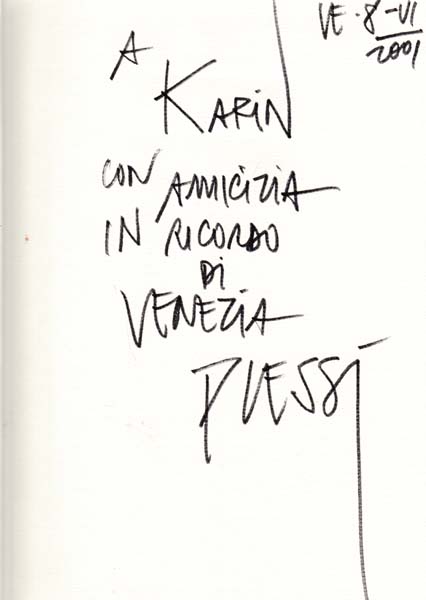 VE·8-VI
2001
A
KARIN
CON AMICIZIA
IN RICORDO
DI
VENEZIA
PLESSI